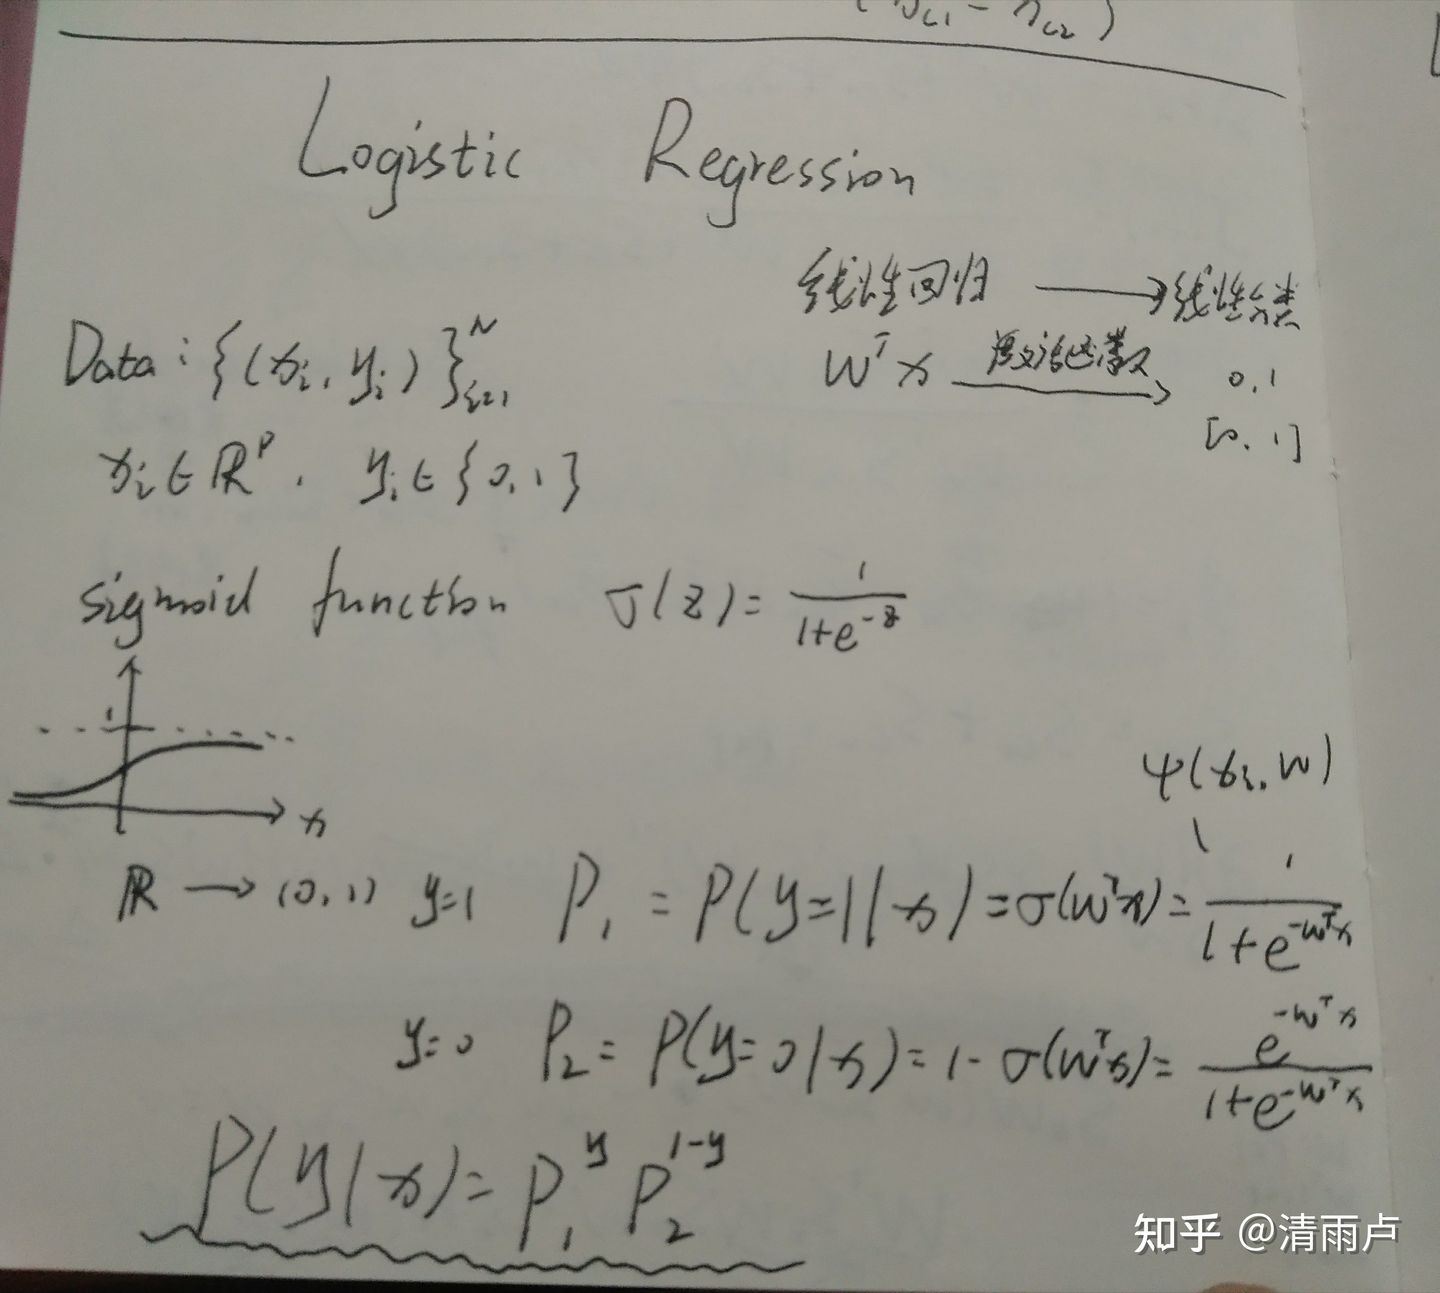 (x_{c1} - x_{c2})
Logistic Regression
线性回归 → 线性分类
Data: {(x_i, y_i)}_{i=1}^N
W^T x 激活函数 → 0, 1
[0, 1]
x_i ∈ ℝ^p. y_i ∈ {0, 1}
sigmoid function σ(z) = 1/(1+e^{-z})
1
x
ψ(x_i, W)
ℝ → (0, 1) y=1 P_1 = P(y=1|x) = σ(W^T x) = 1/(1+e^{-W^T x})
y=0 P_2 = P(y=0|x) = 1-σ(W^T x) = e^{-W^T x}/(1+e^{-W^T x})
P(y|x) = P_1^y P_2^{1-y}
知乎 @清雨卢